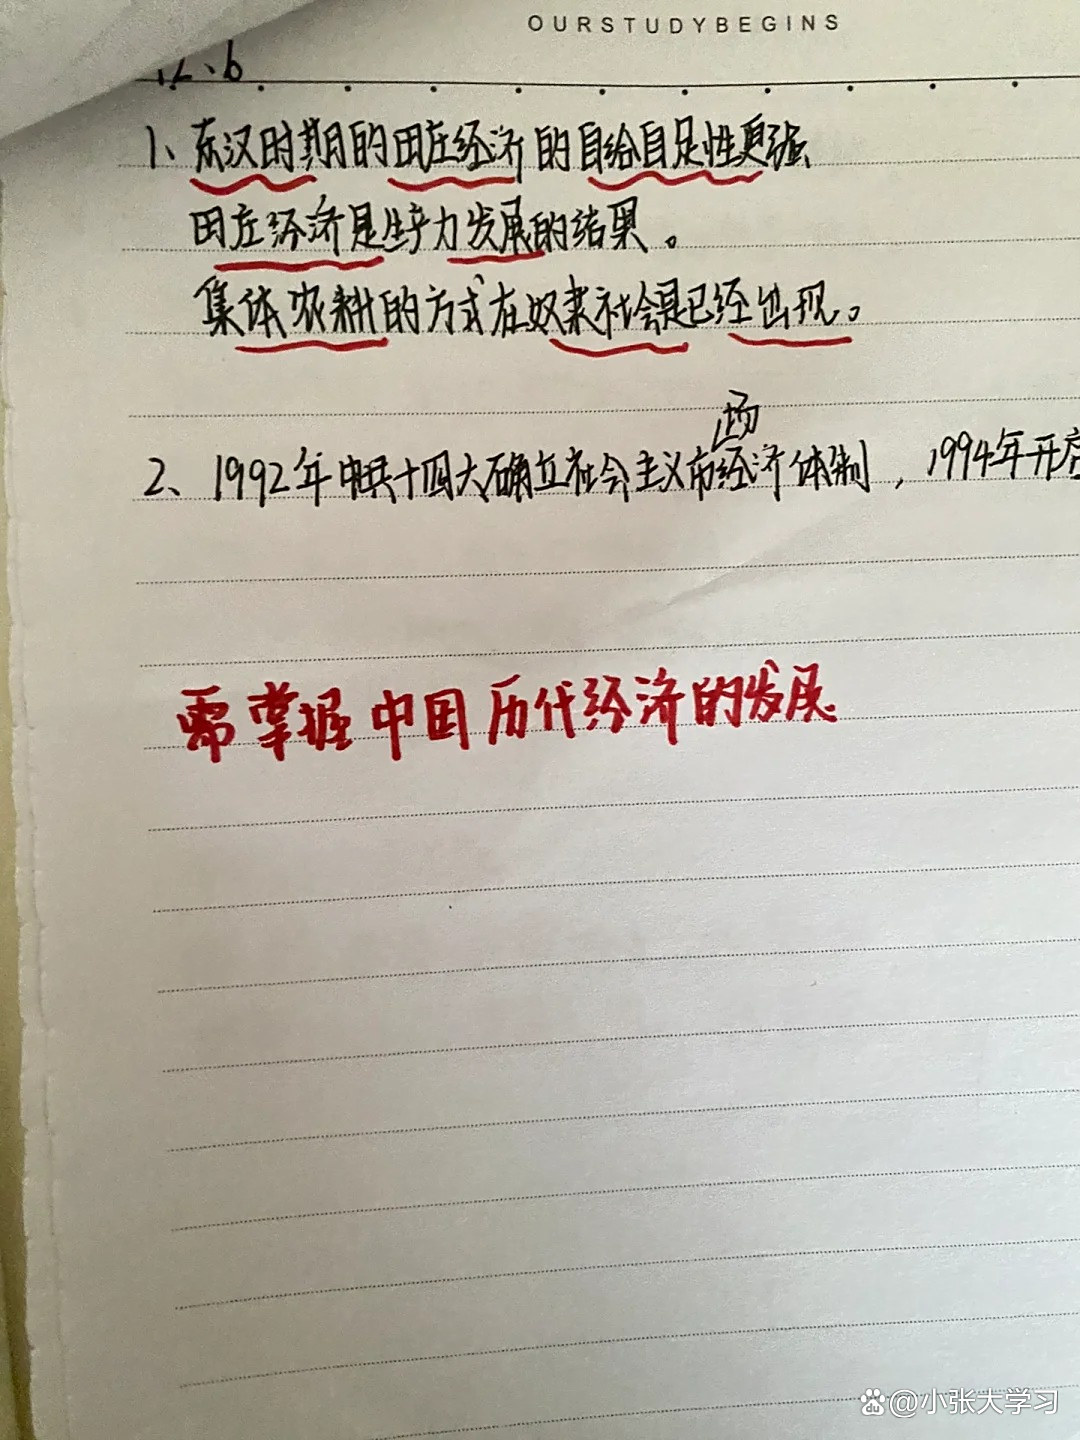 OURSTUDYBEGINS
12、6
1、东汉时期的田庄经济的自给自足性更强
田庄经济是生产力发展的结果。
集体农耕的方式在奴隶社会是已经出现。
场
2、1992年中共十四大确立社会主义市经济体制，1994年开启
需掌握中国历代经济的发展
@小张大学习